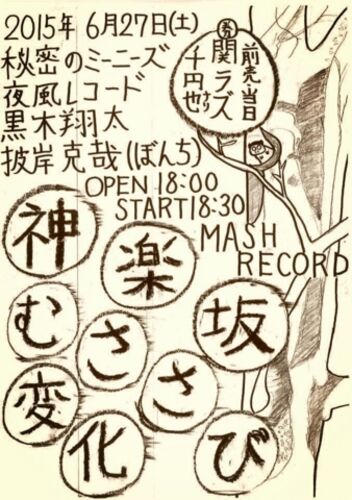 2015年 6月27日(土)
秘密のミーニーズ
夜風レコード
黒木翔太
彼岸克哉(ぼんち)
前売・当日
関ラズ
千円也
なり
OPEN 18:00
START 18:30
MASH
RECORD
神楽坂
むささび
変化